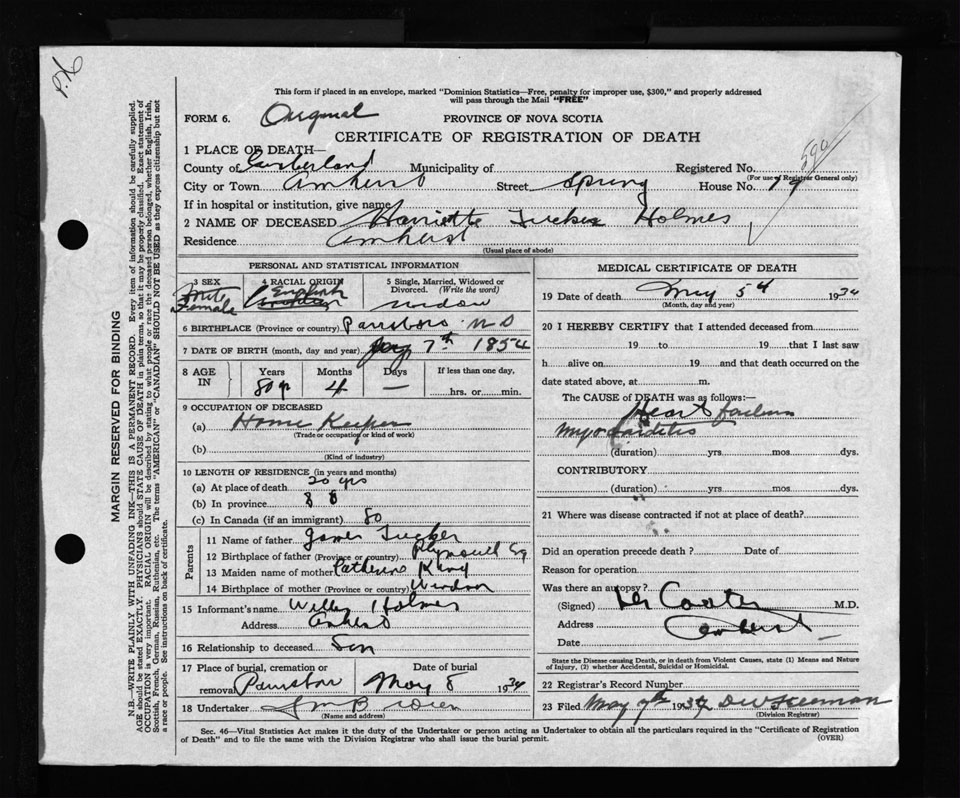 This form if placed in an envelope, marked "Dominion Statistics—Free, penalty for improper use, $300," and properly addressed
will pass through the Mail "FREE"
FORM 6. Original PROVINCE OF NOVA SCOTIA
CERTIFICATE OF REGISTRATION OF DEATH
1 PLACE OF DEATH—
County of Cumberland Municipality of Registered No.
(For use of Registrar General only)
City or Town Amherst Street Spring House No. 79
If in hospital or institution, give name
2 NAME OF DECEASED Harriette Tucker Holmes
Residence Amherst
(Usual place of abode)
PERSONAL AND STATISTICAL INFORMATION
3 SEX 4 RACIAL ORIGIN 5 Single, Married, Widowed or Divorced. (Write the word)
Female English widow
6 BIRTHPLACE (Province or country) Parrsboro N S
7 DATE OF BIRTH (month, day and year) 7th 1854
8 AGE IN Years Months Days If less than one day,
80 yr 4 — hrs. or min.
9 OCCUPATION OF DECEASED
(a) Home Keeper
(Trade or occupation or kind of work)
(b)
(Kind of industry)
10 LENGTH OF RESIDENCE (in years and months)
(a) At place of death 20 yrs
(b) In province 80
(c) In Canada (if an immigrant) 80
Parents
11 Name of father James Tucker
12 Birthplace of father (Province or country) Plymouth Eg
13 Maiden name of mother Catherine King
14 Birthplace of mother (Province or country) Windsor
15 Informant's name Holmes
Address Amherst
16 Relationship to deceased Son
17 Place of burial, cremation or removal Parrsboro Date of burial May 8 1934
18 Undertaker
(Name and address)
MEDICAL CERTIFICATE OF DEATH
19 Date of death May 5th 1934
(Month, day and year)
20 I HEREBY CERTIFY that I attended deceased from
19 to 19 that I last saw
h alive on 19 and that death occurred on the
date stated above, at m.
The CAUSE of DEATH was as follows:—
Heart failure
Myocarditis
(duration) yrs mos dys.
CONTRIBUTORY
(duration) yrs mos dys.
21 Where was disease contracted if not at place of death?
Did an operation precede death? Date of
Reason for operation
Was there an autopsy?
(Signed) M.D.
Address Amherst
Date
State the Disease causing Death, or in death from Violent Causes, state (1) Means and Nature
of Injury, (2) whether Accidental, Suicidal or Homicidal.
22 Registrar's Record Number
23 Filed May 9th 1934 D W Freeman
(Division Registrar)
Sec. 46—Vital Statistics Act makes it the duty of the Undertaker or person acting as Undertaker to obtain all the particulars required in the "Certificate of Registration
of Death" and to file the same with the Division Registrar who shall issue the burial permit.
(OVER)
MARGIN RESERVED FOR BINDING
N.B.—WRITE PLAINLY WITH UNFADING INK—THIS IS A PERMANENT RECORD. Every item of information should be carefully supplied.
AGE should be stated EXACTLY. PHYSICIANS should STATE CAUSE OF DEATH in plain terms, so that it may be properly classified. Exact statement of
OCCUPATION is very important. RACIAL ORIGIN will be described by stating to what people or race the deceased person belonged, whether English, Irish,
Scottish, French, German, Russian, Ruthenian, etc. The terms "AMERICAN" or "CANADIAN" SHOULD NOT BE USED as they express citizenship but not
a race or people. See instructions on back of certificate.